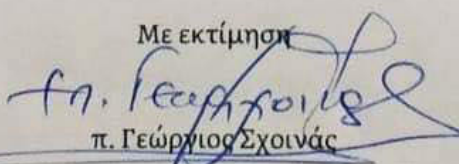 Με εκτίμηση
π. Γεώργιος Σχοινάς